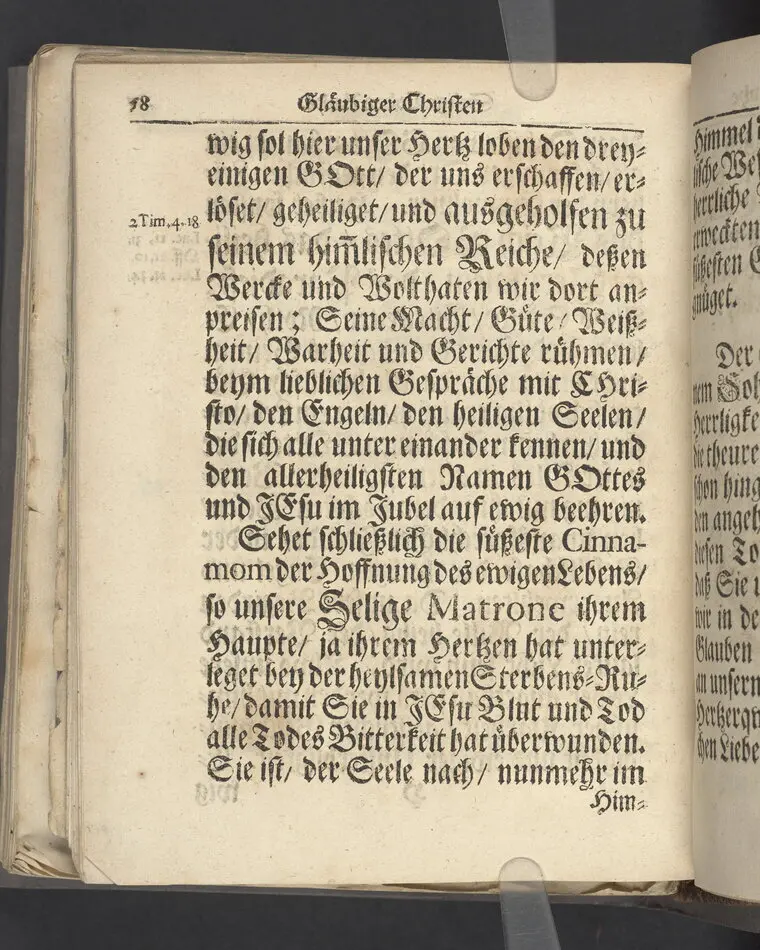 58 Gläubiger Christen
wig sol hier unser Hertz loben den drey⸗
einigen GOtt/ der uns erschaffen/ er⸗
2 Tim. 4. 18 löset/ geheiliget/ und ausgeholfen zu
seinem him̃lischen Reiche/ deßen
Wercke und Wolthaten wir dort an⸗
preisen; Seine Macht/ Güte/ Weiß⸗
heit/ Warheit und Gerichte rühmen/
beym lieblichen Gespräche mit CHri⸗
sto/ den Engeln/ den heiligen Seelen/
die sich alle unter einander kennen/ und
den allerheiligsten Namen GOttes
und JEsu im Jubel auf ewig beehren.
Sehet schließlich die süßeste Cinna-
mom der Hoffnung des ewigen Lebens/
so unsere Selige Matrone ihrem
Haupte/ ja ihrem Hertzen hat unter⸗
leget bey der heylsamen Sterbens⸗Ru⸗
he/ damit Sie in JEsu Blut und Tod
alle Todes Bitterkeit hat überwunden.
Sie ist/ der Seele nach/ nunmehr im
Him⸗
Himmel
herrliche
erweckten
müget.
Der
nem
theure
schon
den
diesen
daß Sie
wir in
Glauben
an unserm